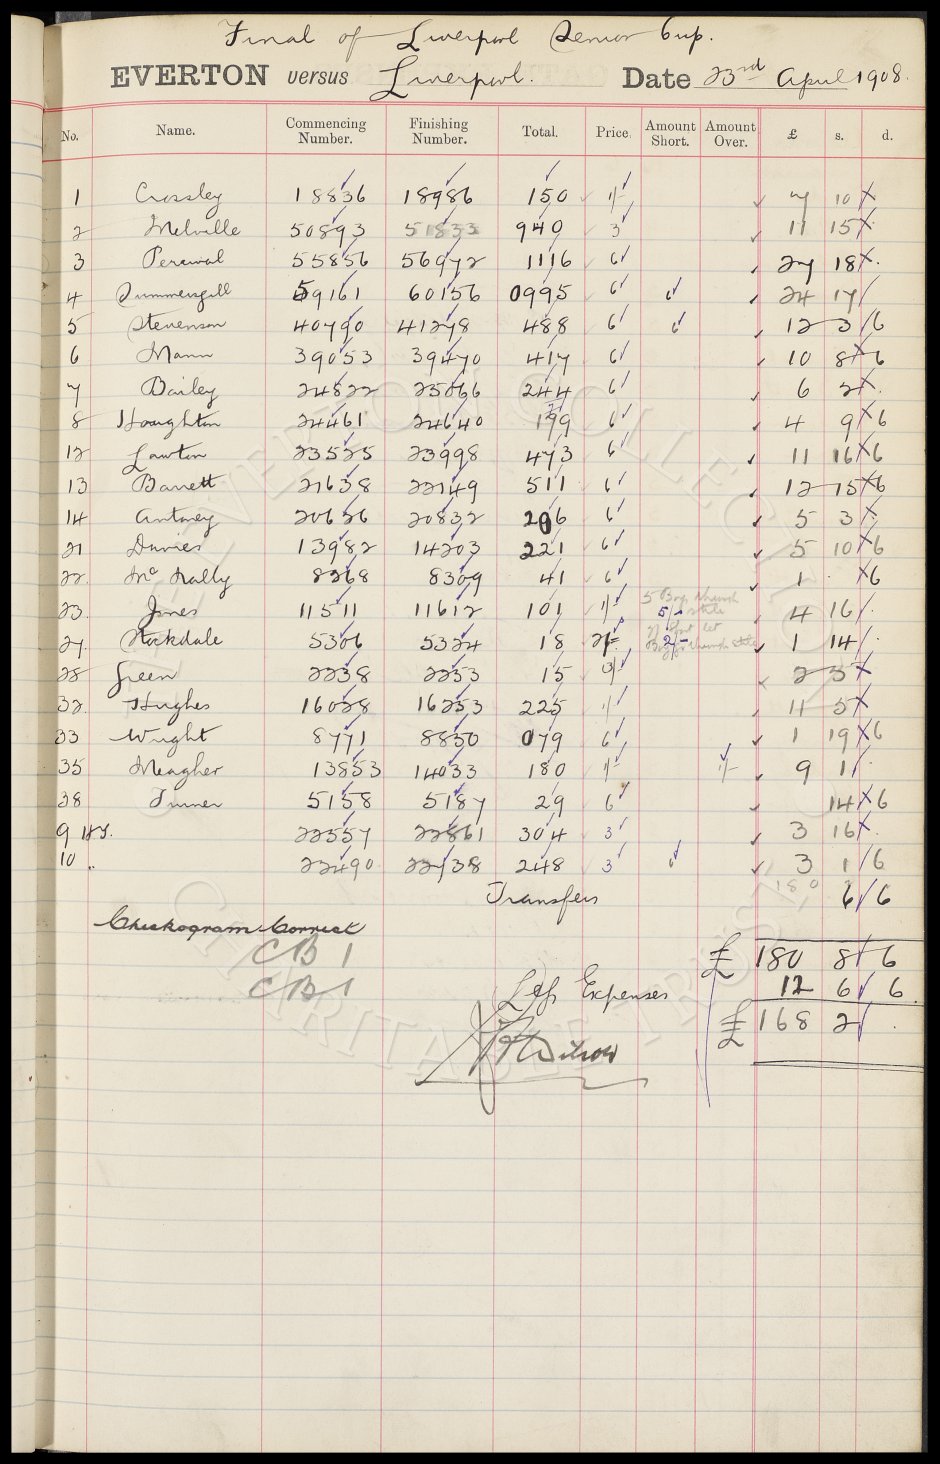 Final of Liverpool Senior Cup.
EVERTON versus Liverpool. Date 23rd April 1908.
No. Name. Commencing Number. Finishing Number. Total. Price. Amount Short. Amount Over. £ s. d.
1 Crossley 18836 18986 150 1/- 7 10
2 Melville 50893 51833 940 3 11 15
3 Percival 55856 56972 1116 6 27 18
4 Summersgill 59161 60156 0995 6 6 24 17
5 Stevenson 40790 41278 488 6 6 12 3 6
6 Mann 39053 39470 417 6 10 8 6
7 Bailey 24822 25066 244 6 6 2
8 Houghton 24461 24640 199 6 4 9 6
12 Lawton 23525 23998 473 6 11 16 6
13 Barrett 21638 22149 511 6 12 15 6
14 Antney 20626 20832 206 6 5 3
21 Davies 13982 14203 221 6 5 10 6
22. McNally 8268 8309 41 6 1 . 6
23. Jones 11511 11612 101 1/- 5 Boys through stile 5/- 4 16
27. Stockdale 5306 5324 18 2/- 2/- 1 14
28 Green 2238 2253 15 3/ 2 5
32. Hughes 16028 16253 225 1/- 11 5
33 Wright 8771 8850 079 6 1 19 6
35 Meagher 13853 14033 180 1/- 1/- 9 1
38 Turner 5158 5187 29 6 14 6
9 H.T. 22557 22861 304 3 3 16
10 .. 22490 22738 248 3 6 3 1 6
Transfers 6 6
Checkogram Correct
CB 1 £ 180 8 6
CB 1 Less Expenses 12 6 6
£ 168 2 .